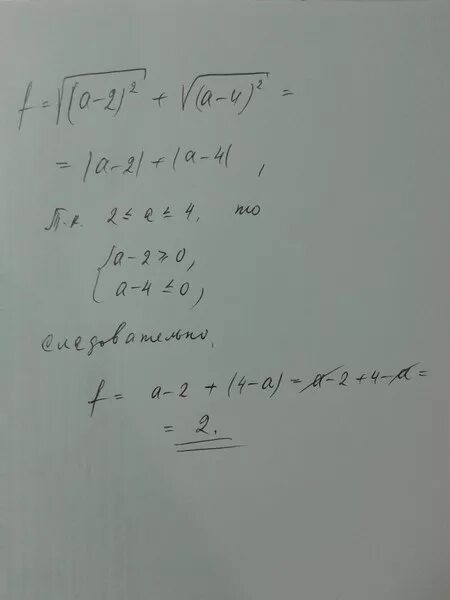 f = √(a-2)² + √(a-4)² =
= |a-2| + |a-4|,
Т.к. 2 ≤ a ≤ 4, то
{ a-2 ≥ 0,
a-4 ≤ 0,
следовательно,
f = a-2 + (4-a) = a-2+4-a =
= 2.